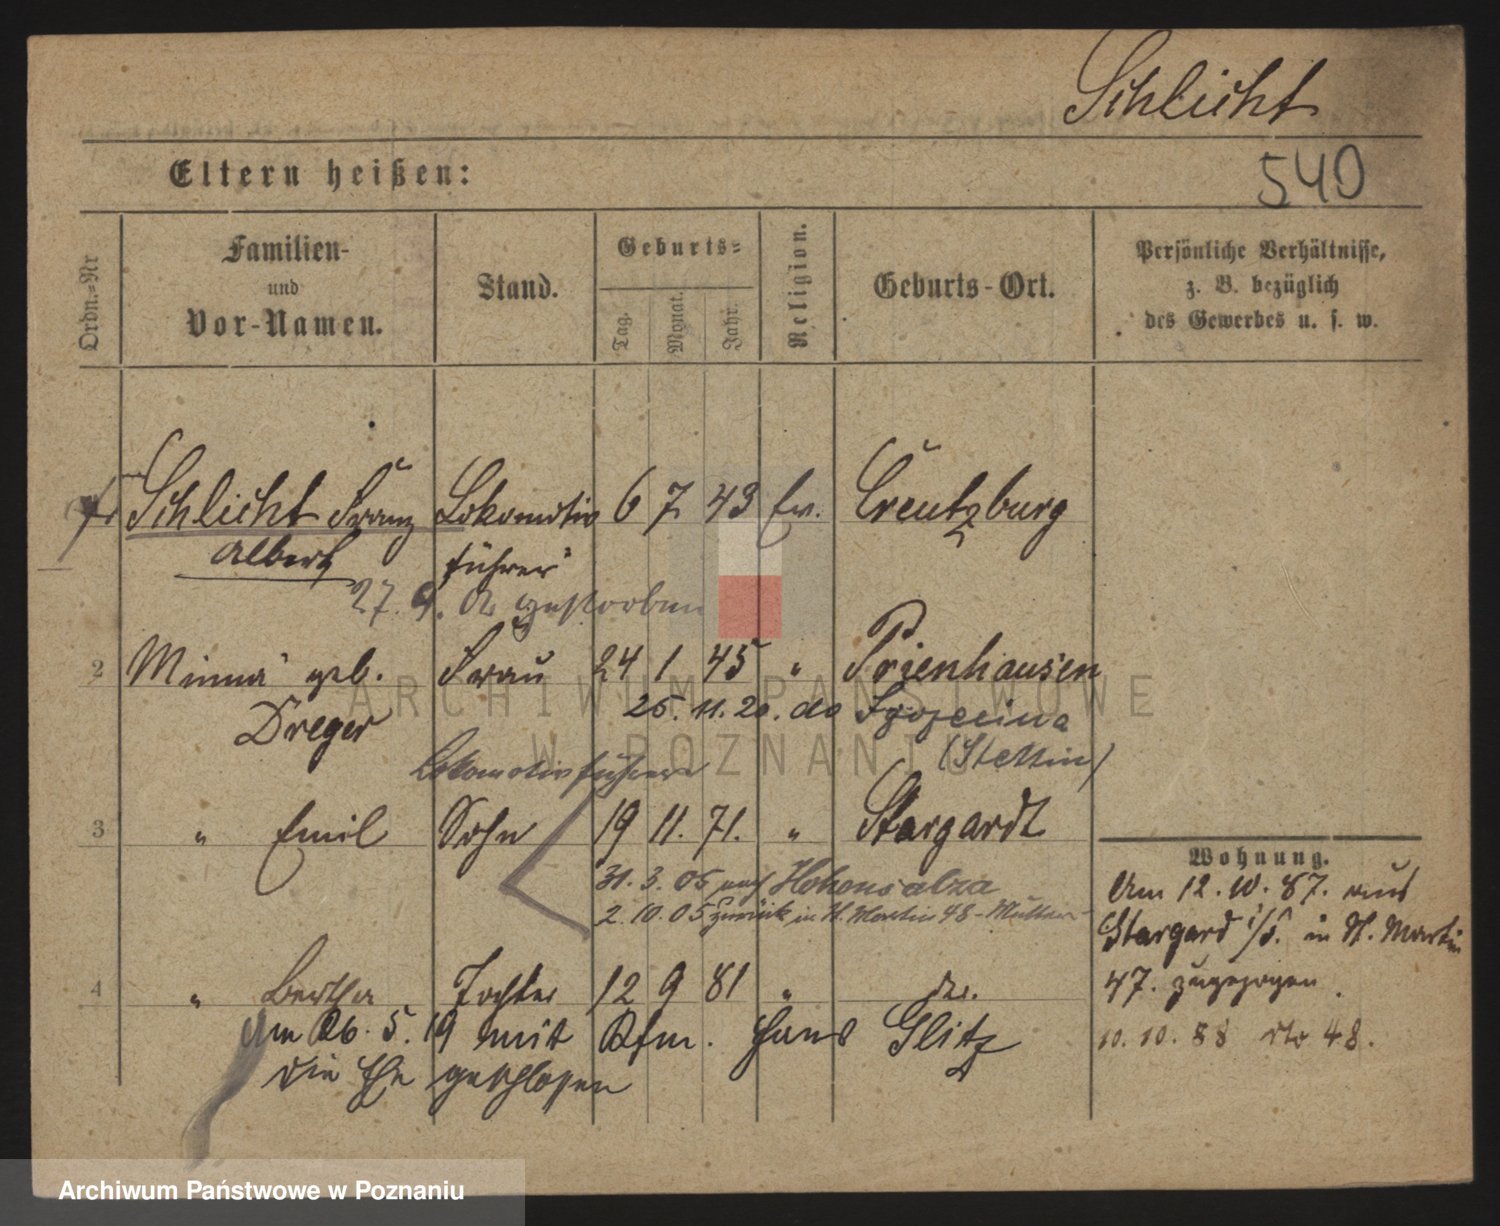 Schlicht
Eltern heißen:
540
Ordn.-Nr
Familien-
und
Vor-Namen.
Stand.
Geburts-
Tag.
Monat.
Jahr.
Religion.
Geburts-Ort.
Persönliche Verhältnisse,
z. B. bezüglich
des Gewerbes u. s. w.
Schlicht Franz Lokomotiv 6 7 43 Ev. Creutzburg
Albert führer
27. 9. 02 gestorben
2 Minna geb. Frau 24 1 45 " Prienhausen
Dreger 25. 11. 20. do Szczecina
(Stettin)
Lokomotivführer
3 " Emil Sohn 19 11. 71. " Stargardt
31. 3. 05 nach Hohensalza
2. 10. 05 zurück in St. Martin 48 - Mutter
4 " Bertha Tochter 12 9 81 " do.
Am 26. 5. 19 mit Kfm. Hans Glitz
die Ehe geschlossen
Wohnung.
Am 12. 10. 87. aus
Stargard i/P. in St. Martin
47. zugezogen.
10. 10. 88 dto 48.
ARCHIWUM PAŃSTWOWE
W POZNANIU
Archiwum Państwowe w Poznaniu